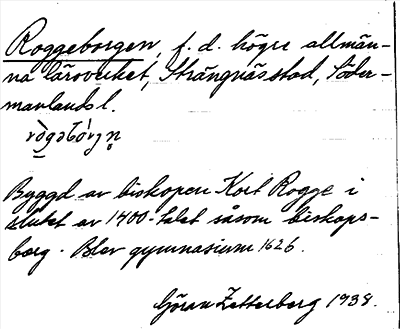 Roggeborgen, f. d. högre allmän-
na läroverket, Strängnäs stad, Söder-
manlands l.
Byggd av biskopen Kort Rogge i
slutet av 1400-talet såsom biskops-
borg. Blev gymnasium 1626.
Göran Zetterberg 1938.